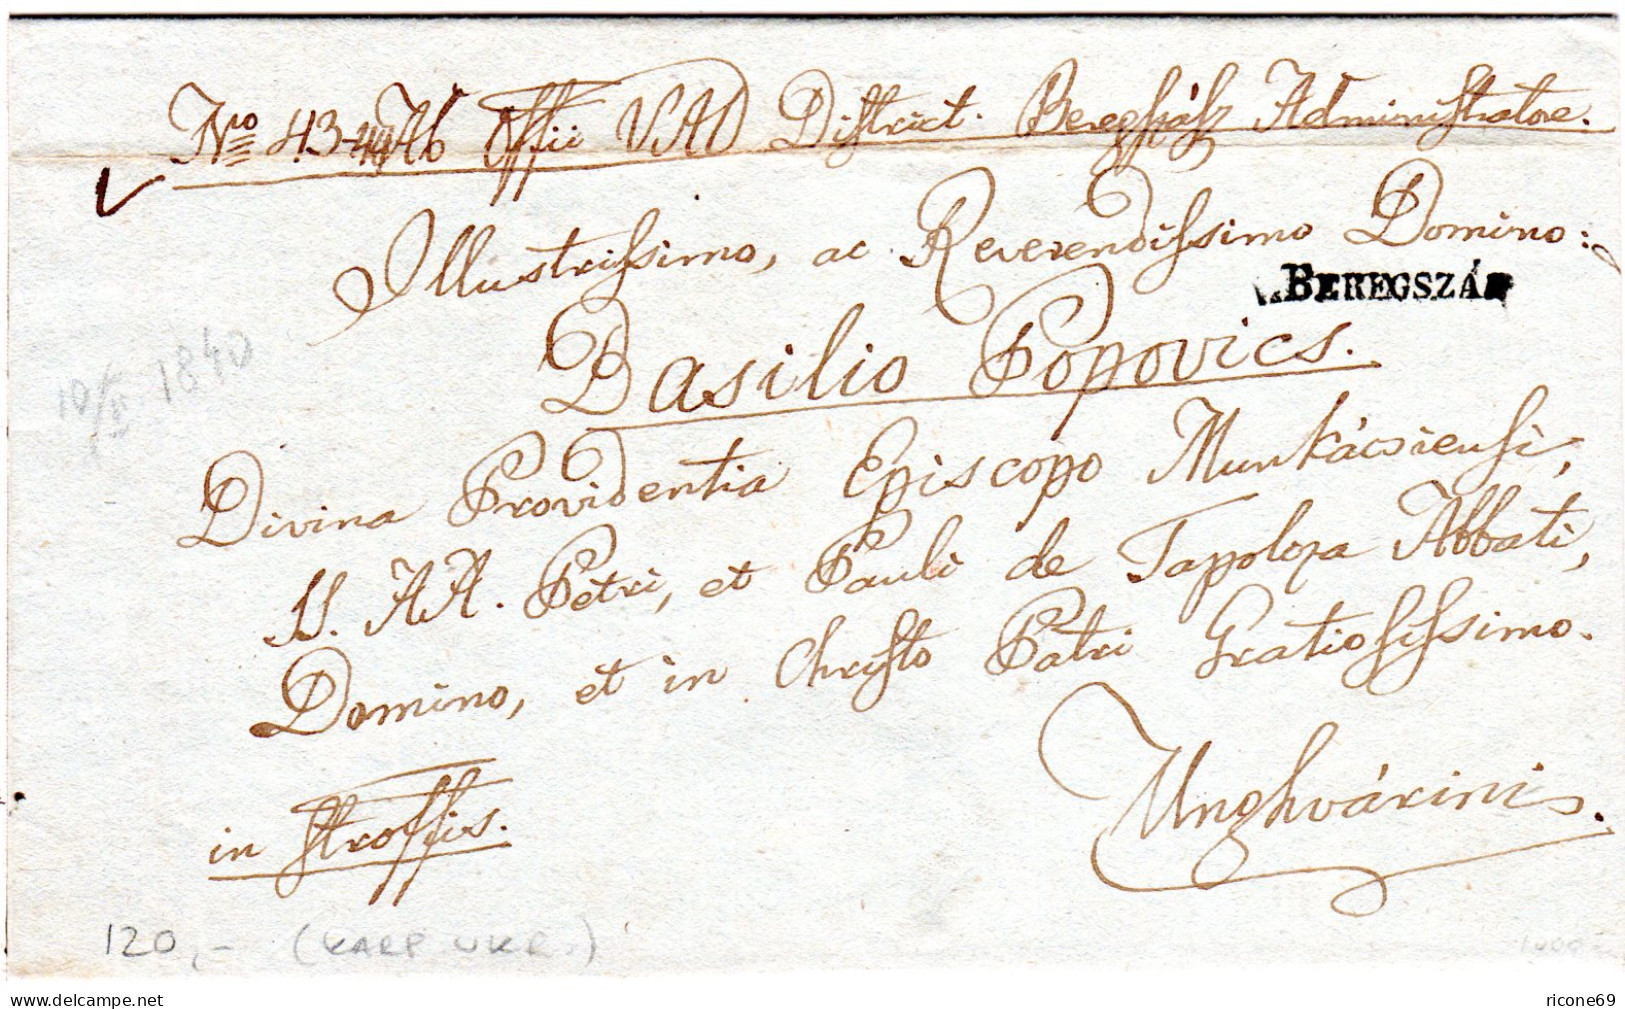 Nro 43 Ab Offii VAD District. Beregszász Administratore.
Illustrissimo, ac Reverendissimo Domino:
BEREGSZÁ
Basilio Popovics.
10/ 1840
Divina Providentia Episcopo Munkácsiensi,
SS. AA. Petri, et Pauli de Tapolcza Abbati,
Domino, et in Christo Patri Gratiosissimo.
Unghvárini.
in Stroffis.
120,- (KARP UKR.)
www.delcampe.net
ricone69